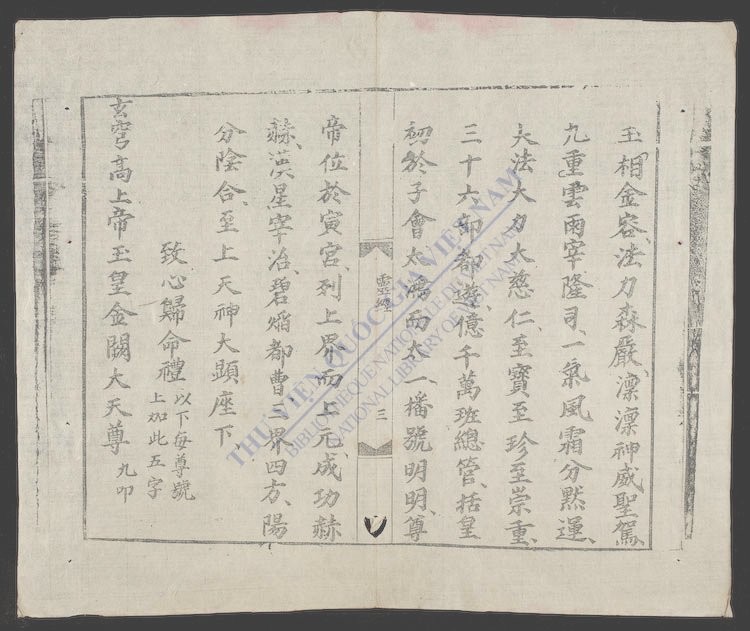 玉相金容、法力森嚴、凛凛神威聖駕、
九重雲雨宰隆司、一氣風霜分黙運、
大法大力大慈仁、至寶至珍至崇重、
三十六部都遊、億千萬班總管、括皇
初於子會太鴻而太一、播號明明、尊
靈經
三
帝位於寅宮、列上界而上元、成功赫
赫、漢星宰治、碧焰都曹三界四方、陽
分陰合、至上天神大顯座下
致心歸命禮 以下每尊號
上如此五字
玄穹高上帝玉皇金闕大天尊 九叩
THƯ VIỆN QUỐC GIA VIỆT NAM
BIBLIOTHÈQUE NATIONALE DU VIETNAM
NATIONAL LIBRARY OF VIETNAM